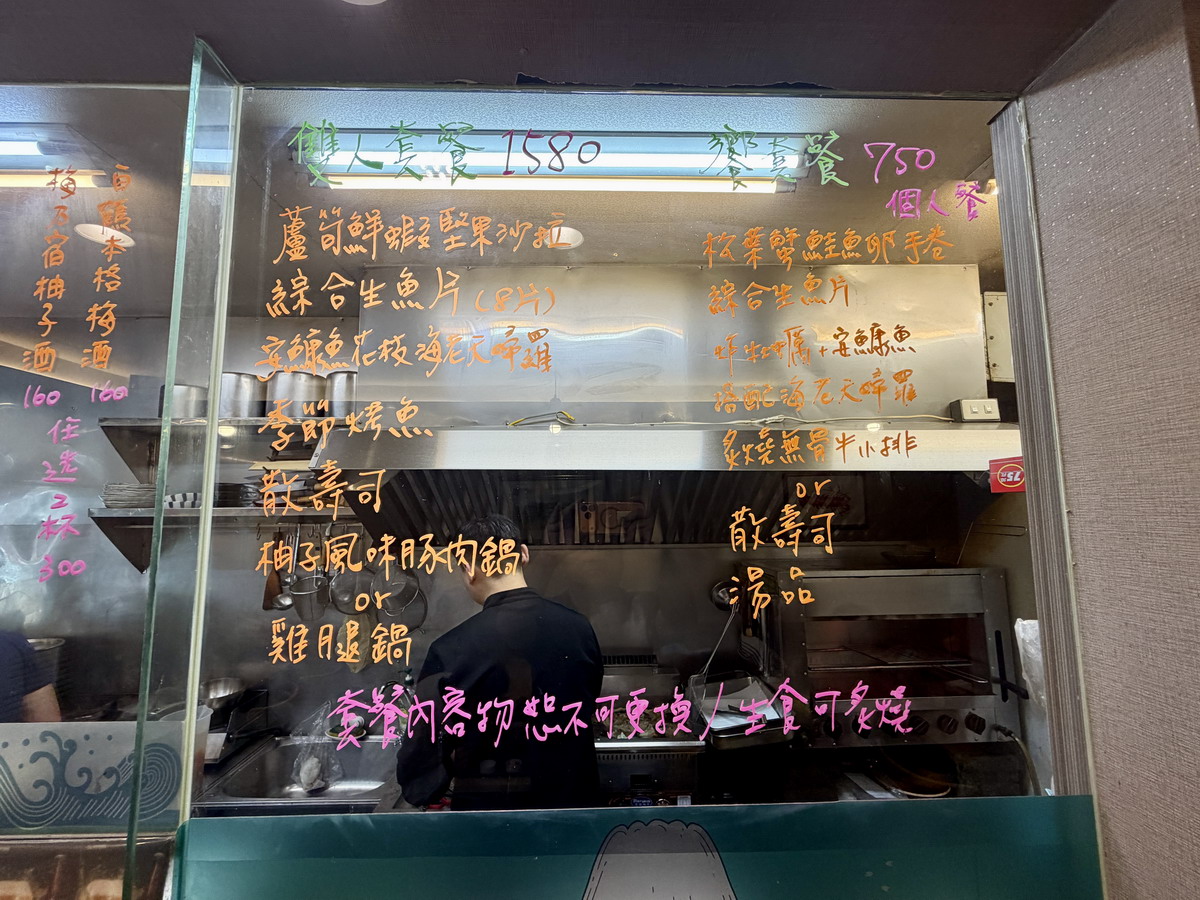 梅乃宿柚子酒
160
白鶴本格梅酒
160
任選2杯
300
雙人套餐 1580
蘆筍鮮蝦堅果沙拉
綜合生魚片(8片)
安鱇魚花枝海老天婦羅
季節烤魚
散壽司
柚子風味豚肉鍋
or
雞腿鍋
饗套餐 750
個人餐
松葉蟹鮭魚卵手卷
綜合生魚片
炸牡蠣+安鱇魚
搭配海老天婦羅
炙燒無骨牛小排
or
散壽司
湯品
套餐內容物恕不可更換/生食可炙燒
75